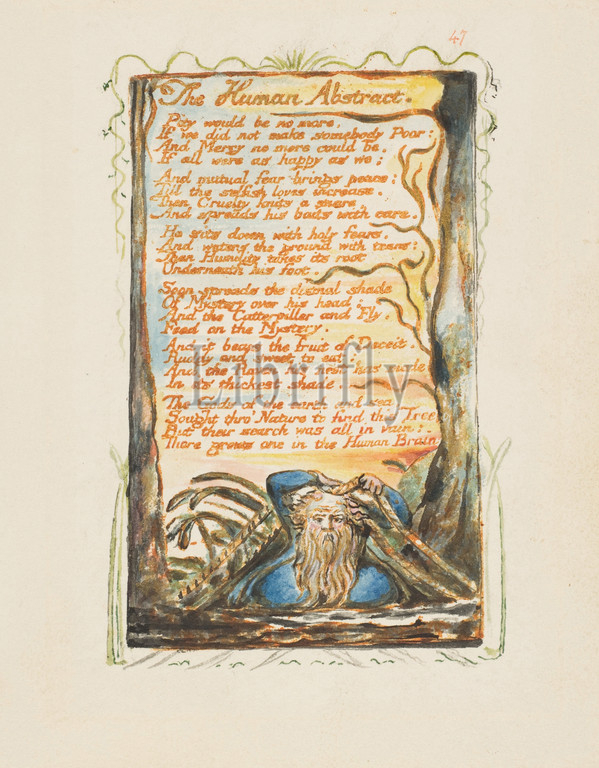 47
The Human Abstract.
Pity would be no more,
If we did not make somebody Poor:
And Mercy no more could be,
If all were as happy as we;
And mutual fear brings peace:
Till the selfish loves increase.
Then Cruelty knits a snare,
And spreads his baits with care.
He sits down with holy fears,
And waters the ground with tears:
Then Humility takes its root
Underneath his foot.
Soon spreads the dismal shade
Of Mystery over his head;
And the Catterpiller and Fly,
Feed on the Mystery.
And it bears the fruit of Deceit,
Ruddy and sweet to eat;
And the Raven his nest has made
In its thickest shade.
The Gods of the earth and sea,
Sought thro' Nature to find this Tree
But their search was all in vain:
There grows one in the Human Brain
Librifly